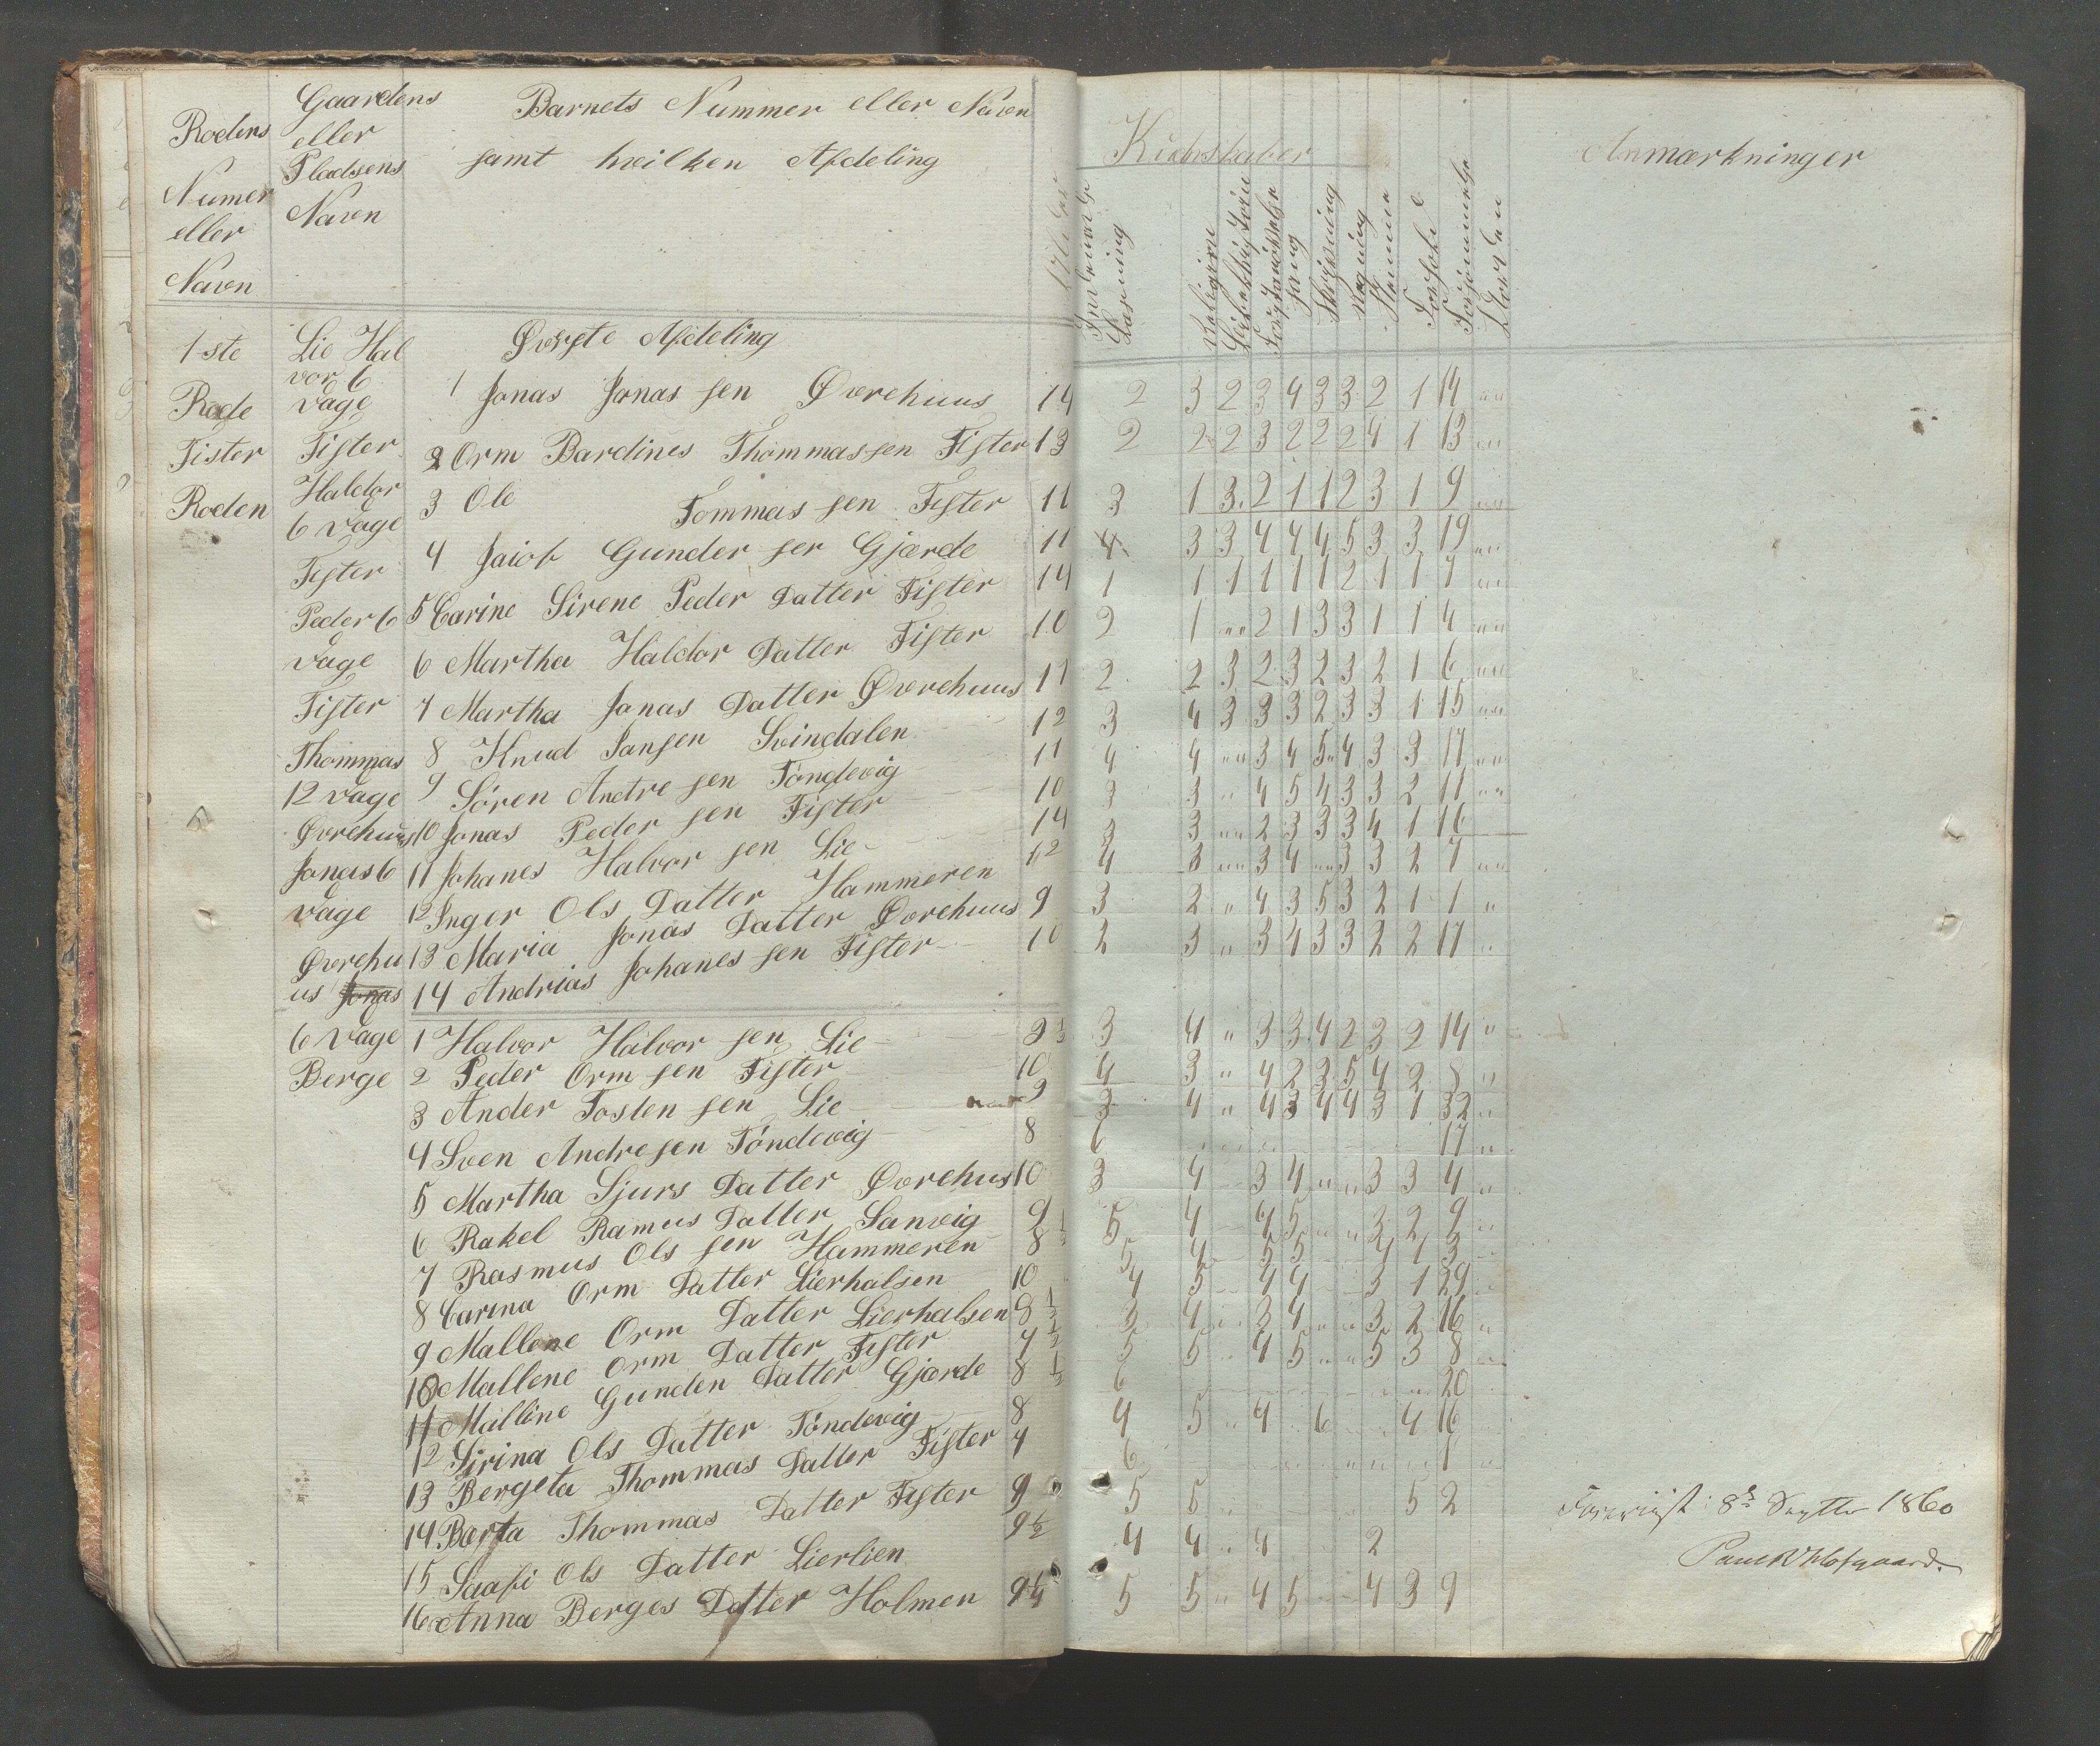 Rodens
Numer
eller
Navn
Gaardens
eller
Pladsens
Navn
Barnets Nummer eller Navn
samt hvilken Afdeling
Kundskaber
Anmærkninger
Læsning
Religion
Sang
Skrivning
Regning
Evne
1ste
Rode
Fister
Roden
Lie Hal
vor 6
vage
Fister
Haldor
6 vage
Fister
Peder 6
vage
Fister
Thommas
12 vage
Øvrehuus
Jonas 6
vage
Øvrehu
us Jonas
6 vage
Berge
Øverste Afdeling
1 Jonas Jonas sen Øvrehuus 14 2 3 2 3 4 3 3 2 1 14 "
2 Orm Bardines Thommassen Fister 13 2 2 2 3 2 2 2 4 1 13 "
3 Ole Tommas sen Fister 11 3 1 3 2 1 1 2 3 1 9 "
4 Jaiof Gunder sen Gjærde 11 4 3 3 4 4 4 5 3 3 19 "
5 Carine Sirene Peder Datter Fister 14 1 1 1 1 1 1 2 1 1 7 "
6 Martha Haldor Datter Fister 10 2 1 " 2 1 3 3 1 1 4 "
7 Martha Jonas Datter Øvrehuus 11 2 2 3 2 3 2 3 2 1 6 "
8 Knud Jansen Svindalen 12 3 4 3 3 3 2 3 3 1 15 "
9 Sören Andre sen Töndevig 11 4 4 " 3 4 5 4 3 3 17 "
10 Jonas Peder sen Fister 10 3 3 " 4 5 4 3 3 2 11 "
11 Johanes Halvor sen Lie 14 3 3 " 2 3 3 3 4 1 16
12 Inger Ols Datter Hammeren 12 4 3 " 3 4 " 3 3 2 7 "
13 Maria Jonas Datter Øvrehuus 9 3 2 " 4 3 5 3 2 1 1 "
14 Andrias Johanes sen Fister 10 2 3 " 3 4 3 3 2 2 17 "
1 Halvor Halvor sen Lie 9 1/2 3 4 " 3 3 4 2 3 2 14 "
2 Peder Orm sen Fister 10 4 3 " 4 2 3 5 4 2 8 "
3 Ander Tosten sen Lie 9 3 4 " 4 3 4 4 3 1 32 "
4 Sven Andresen Töndevig 8 6 17 "
5 Martha Sjurs Datter Øvrehus 10 3 4 3 4 " " 3 3 4 "
6 Rakel Ramus Datter Sanvig 9 5 4 4 5 " " 3 2 9 "
7 Rasmus Ols sen Hammeren 8 1/2 5 4 5 5 4 1 3
8 Carina Orm Datter Lierhalsen 10 4 5 4 4 3 1 29
9 Mallene Orm Datter Lierhalsen 8 1/2 3 4 3 4 " " 3 2 16 "
10 Mallene Orm Datter Fister 7 1/2 5 5 " 4 5 " " 5 3 8 "
11 Malline Gunden Datter Gjærde 8 1/2 6 20
12 Sirina Ols Datter Töndevig 8 4 5 " 4 6 4 16
13 Bergeta Thommas Datter Fister 7 6 1 "
14 Berta Thommas Datter Fister 9 5 5 5 2
15 Saafi Ols Datter Lierlien 9 1/2 4 4 " 4 2
16 Anna Berges Datter Holmen 9 1/4 5 5 " 4 5 4 3 9
8de Septbr 1860